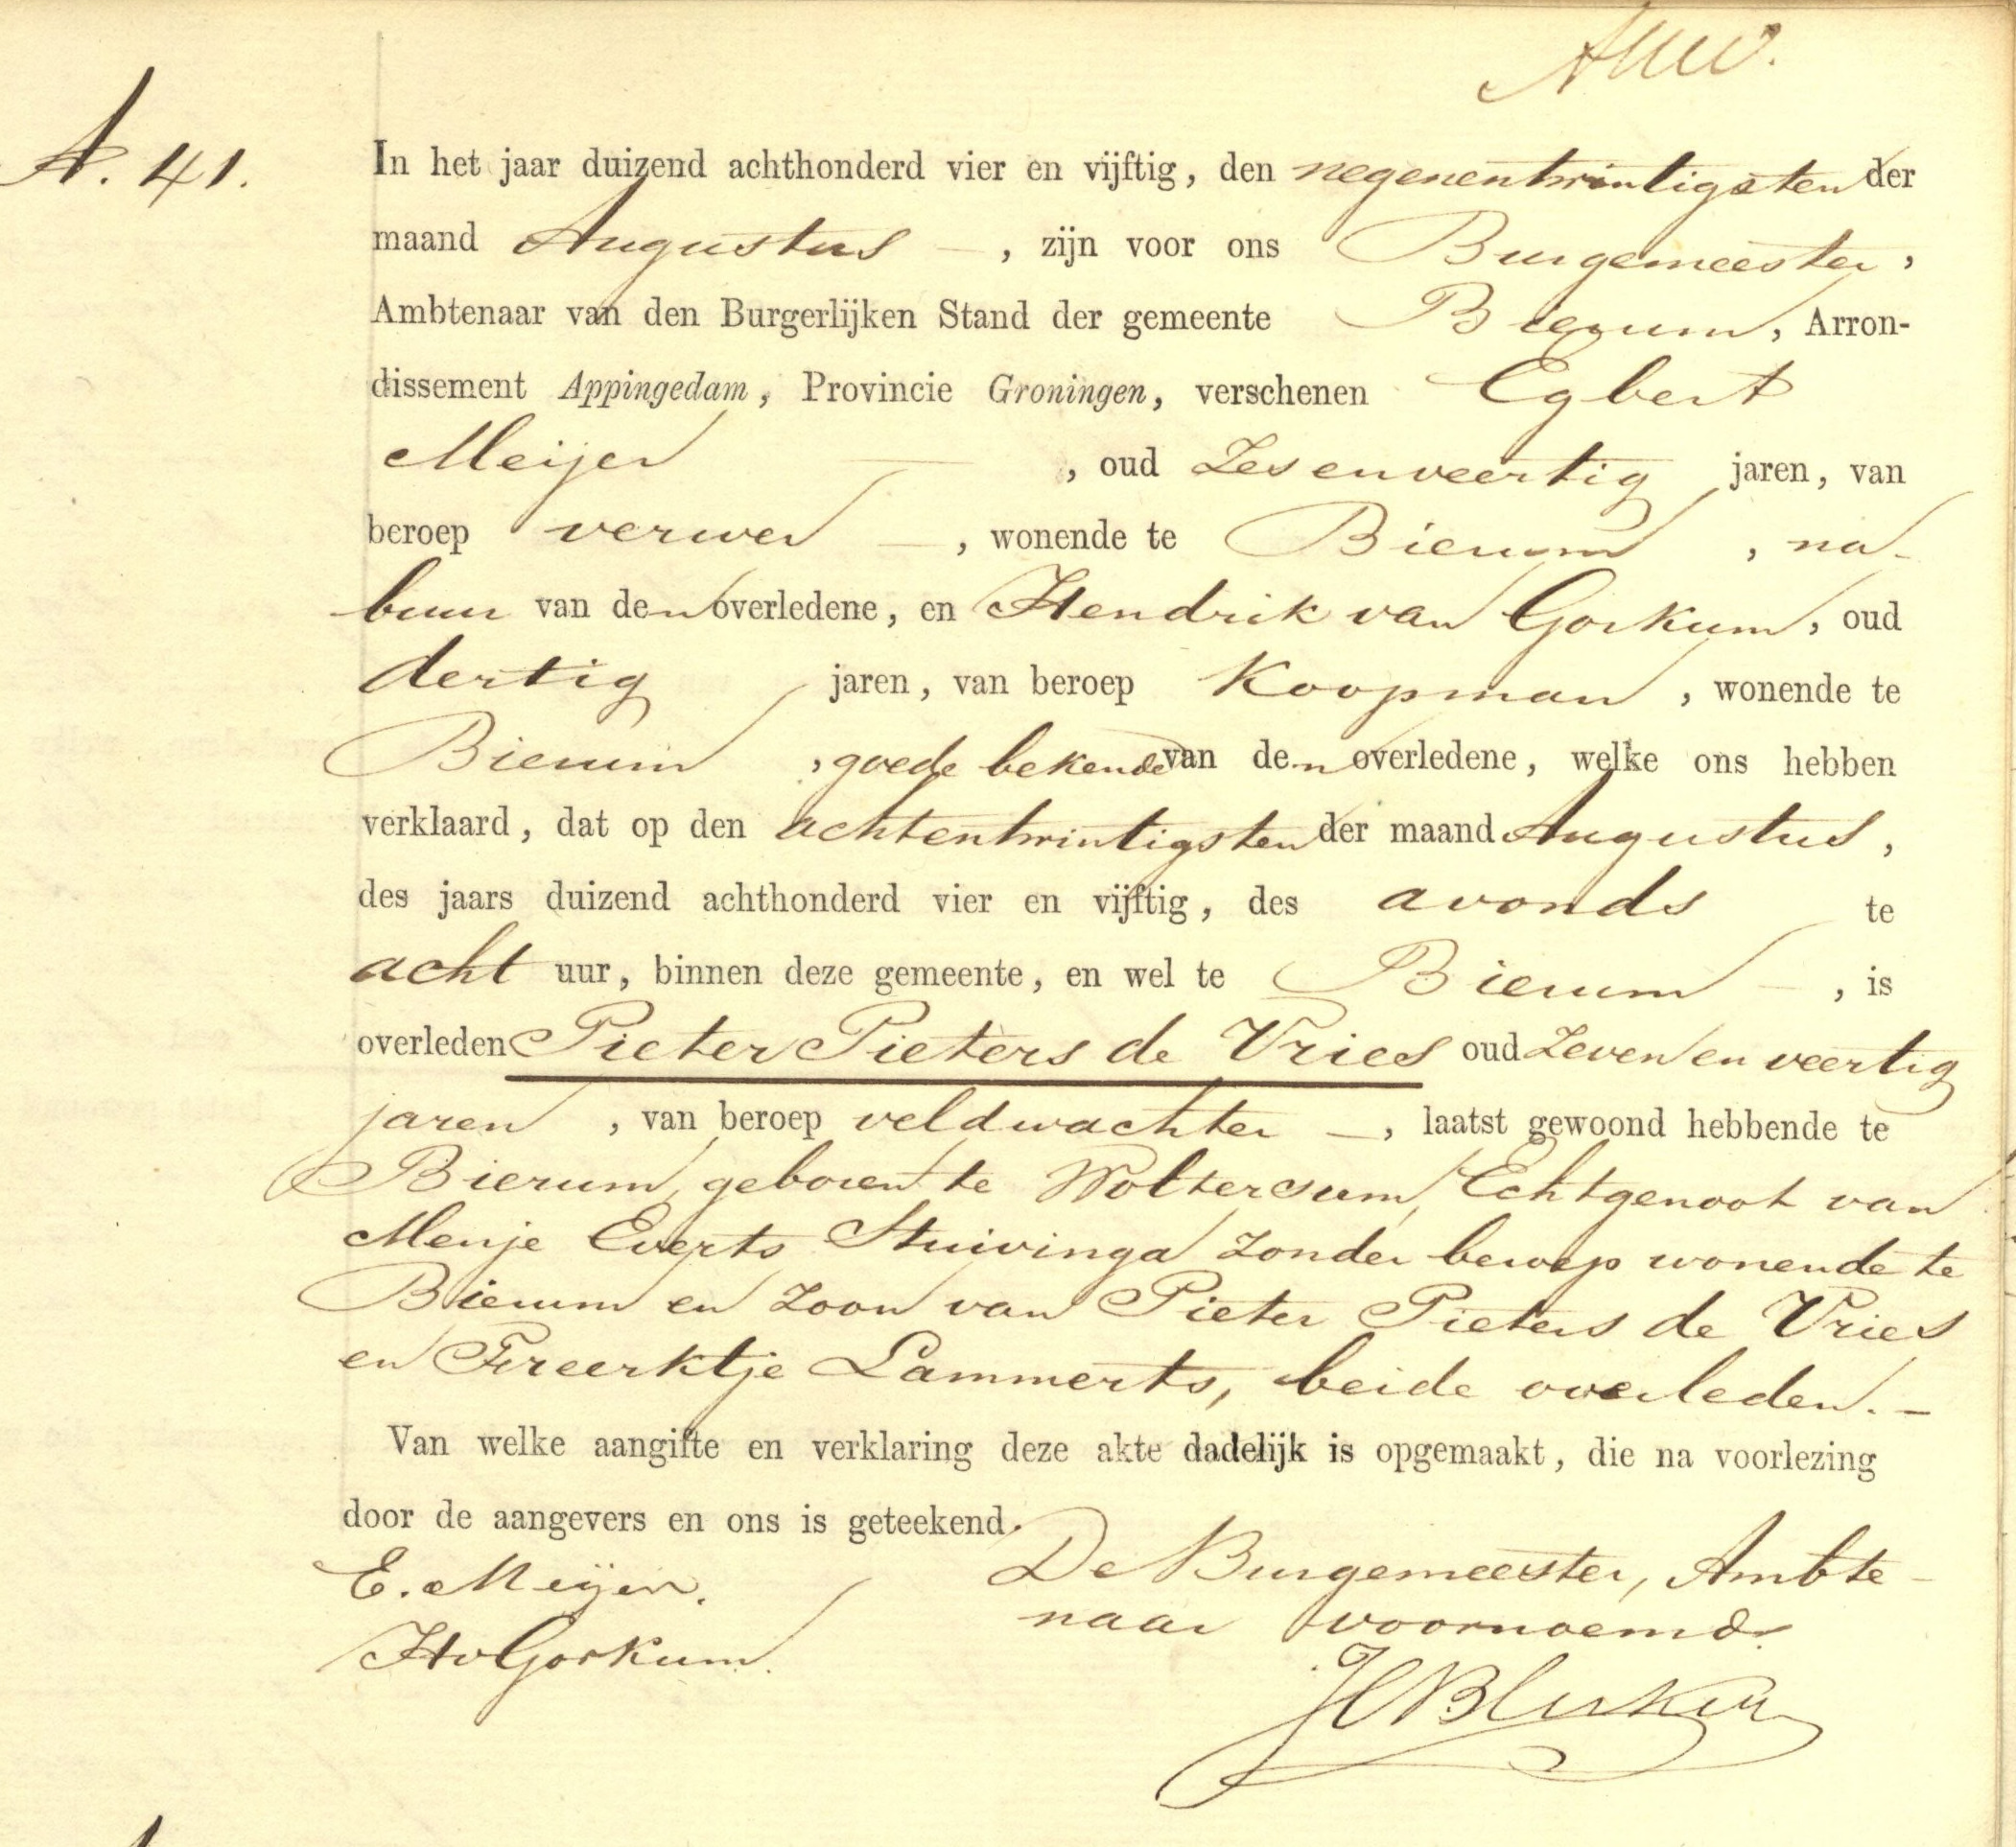 A. 41.
In het jaar duizend achthonderd vier en vijftig, den negenentwintigsten der
maand Augustus —, zijn voor ons Burgemeester,
Ambtenaar van den Burgerlijken Stand der gemeente Bierum, Arron-
dissement Appingedam, Provincie Groningen, verschenen Egbert
Meijer —, oud Zesenveertig jaren, van
beroep verwer —, wonende te Bierum, na-
buur van den overledene, en Hendrik van Gorkum, oud
dertig jaren, van beroep Koopman, wonende te
Bierum, goede bekende van den overledene, welke ons hebben
verklaard, dat op den achtentwintigsten der maand Augustus,
des jaars duizend achthonderd vier en vijftig, des avonds te
acht uur, binnen deze gemeente, en wel te Bierum —, is
overleden Pieter Pieters de Vries oud Zeven en veertig
jaren, van beroep veldwachter —, laatst gewoond hebbende te
Bierum, geboren te Woltersum, Echtgenoot van
Menje Everts Stuivinga zonder beroep wonende te
Bierum en Zoon van Pieter Pieters de Vries
en Freerktje Lammerts, beide overleden. —
Van welke aangifte en verklaring deze akte dadelijk is opgemaakt, die na voorlezing
door de aangevers en ons is geteekend.
De Burgemeester, Ambte-
naar voornoemd.
E. Meijer.
HvGorkum.